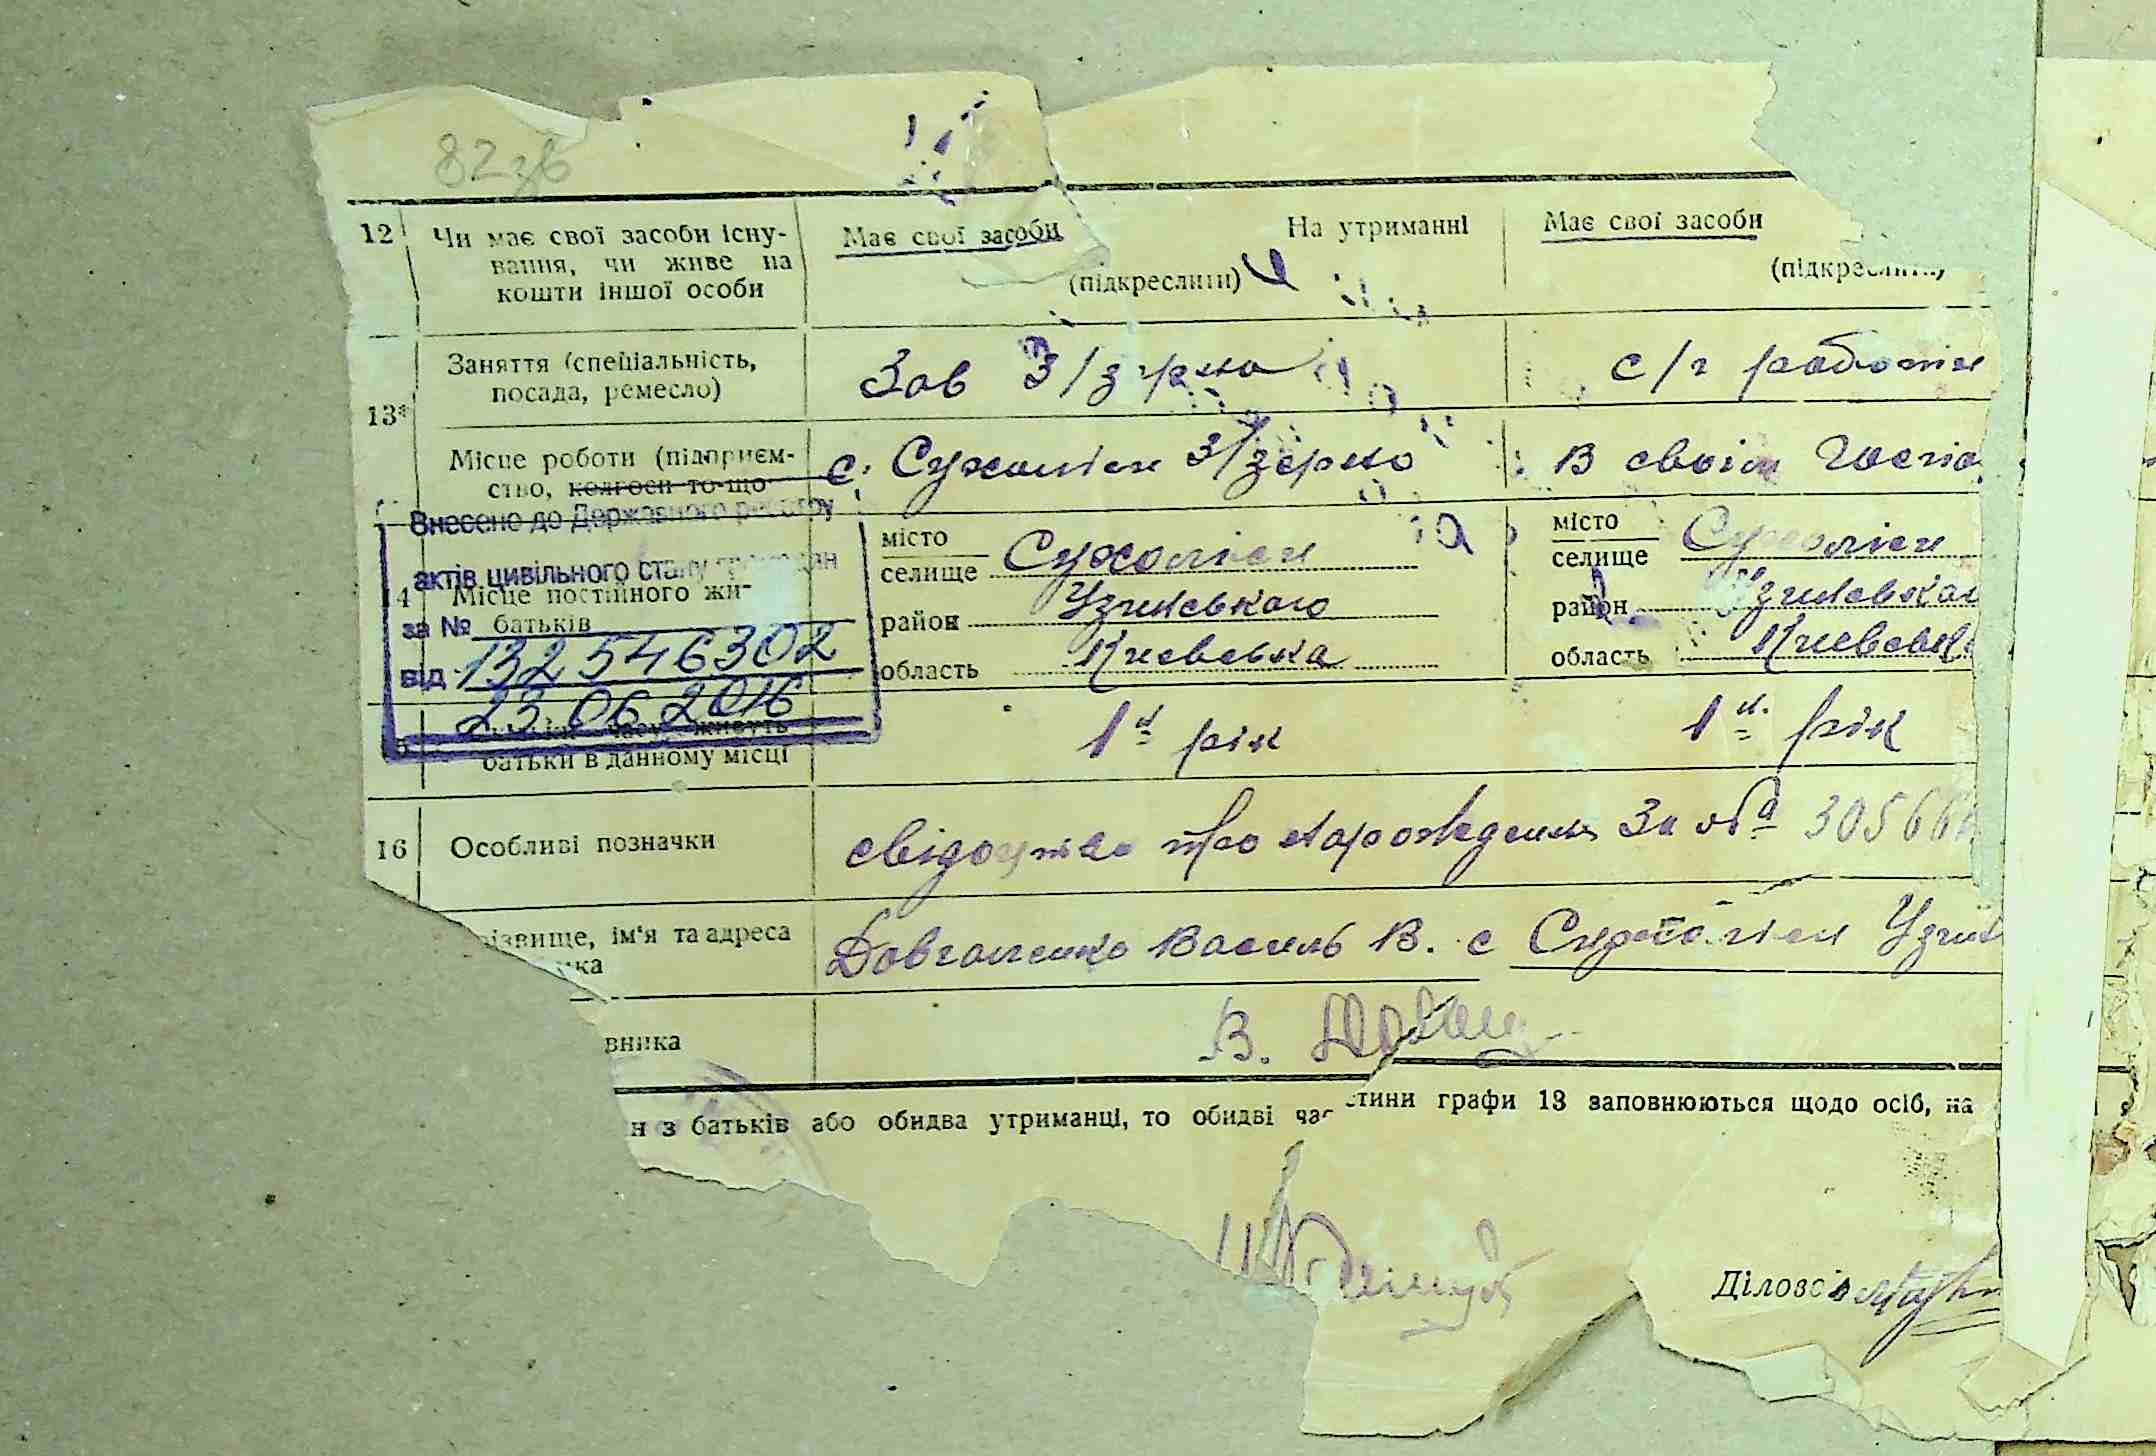 82зв
12 Чи має свої засоби існу- Має свої засоби На утриманні Має свої засоби
вання, чи живе на (підкреслити) (підкреслити)
кошти іншої особи
13* Заняття (спеціальність, Зав З/зерно с/г работн
посада, ремесло)
Місце роботи (підприєм- с. Сухоліси З/зерно В своім Госпо
ство, колгосп то-що
Внесено до Державного реєстру
актів цивільного стану громадян
за №
132546302
від
23.06.2016
14 Місце постійного жи- місто селище Сухоліси місто селище Сухоліси
батьків район Узинського район Узинського
область Киевська область Киевськ
15 часу живуть 1й рік 1й рік
батьки в данному місці
16 Особливі позначки свідоцтво про народження За № 30566
різвище, ім'я та адреса Довгаленко Василь В. с Сухоліси Узин
ика
вника В.
н з батьків або обидва утриманці, то обидві частини графи 13 заповнюються щодо осіб, на
Діловод